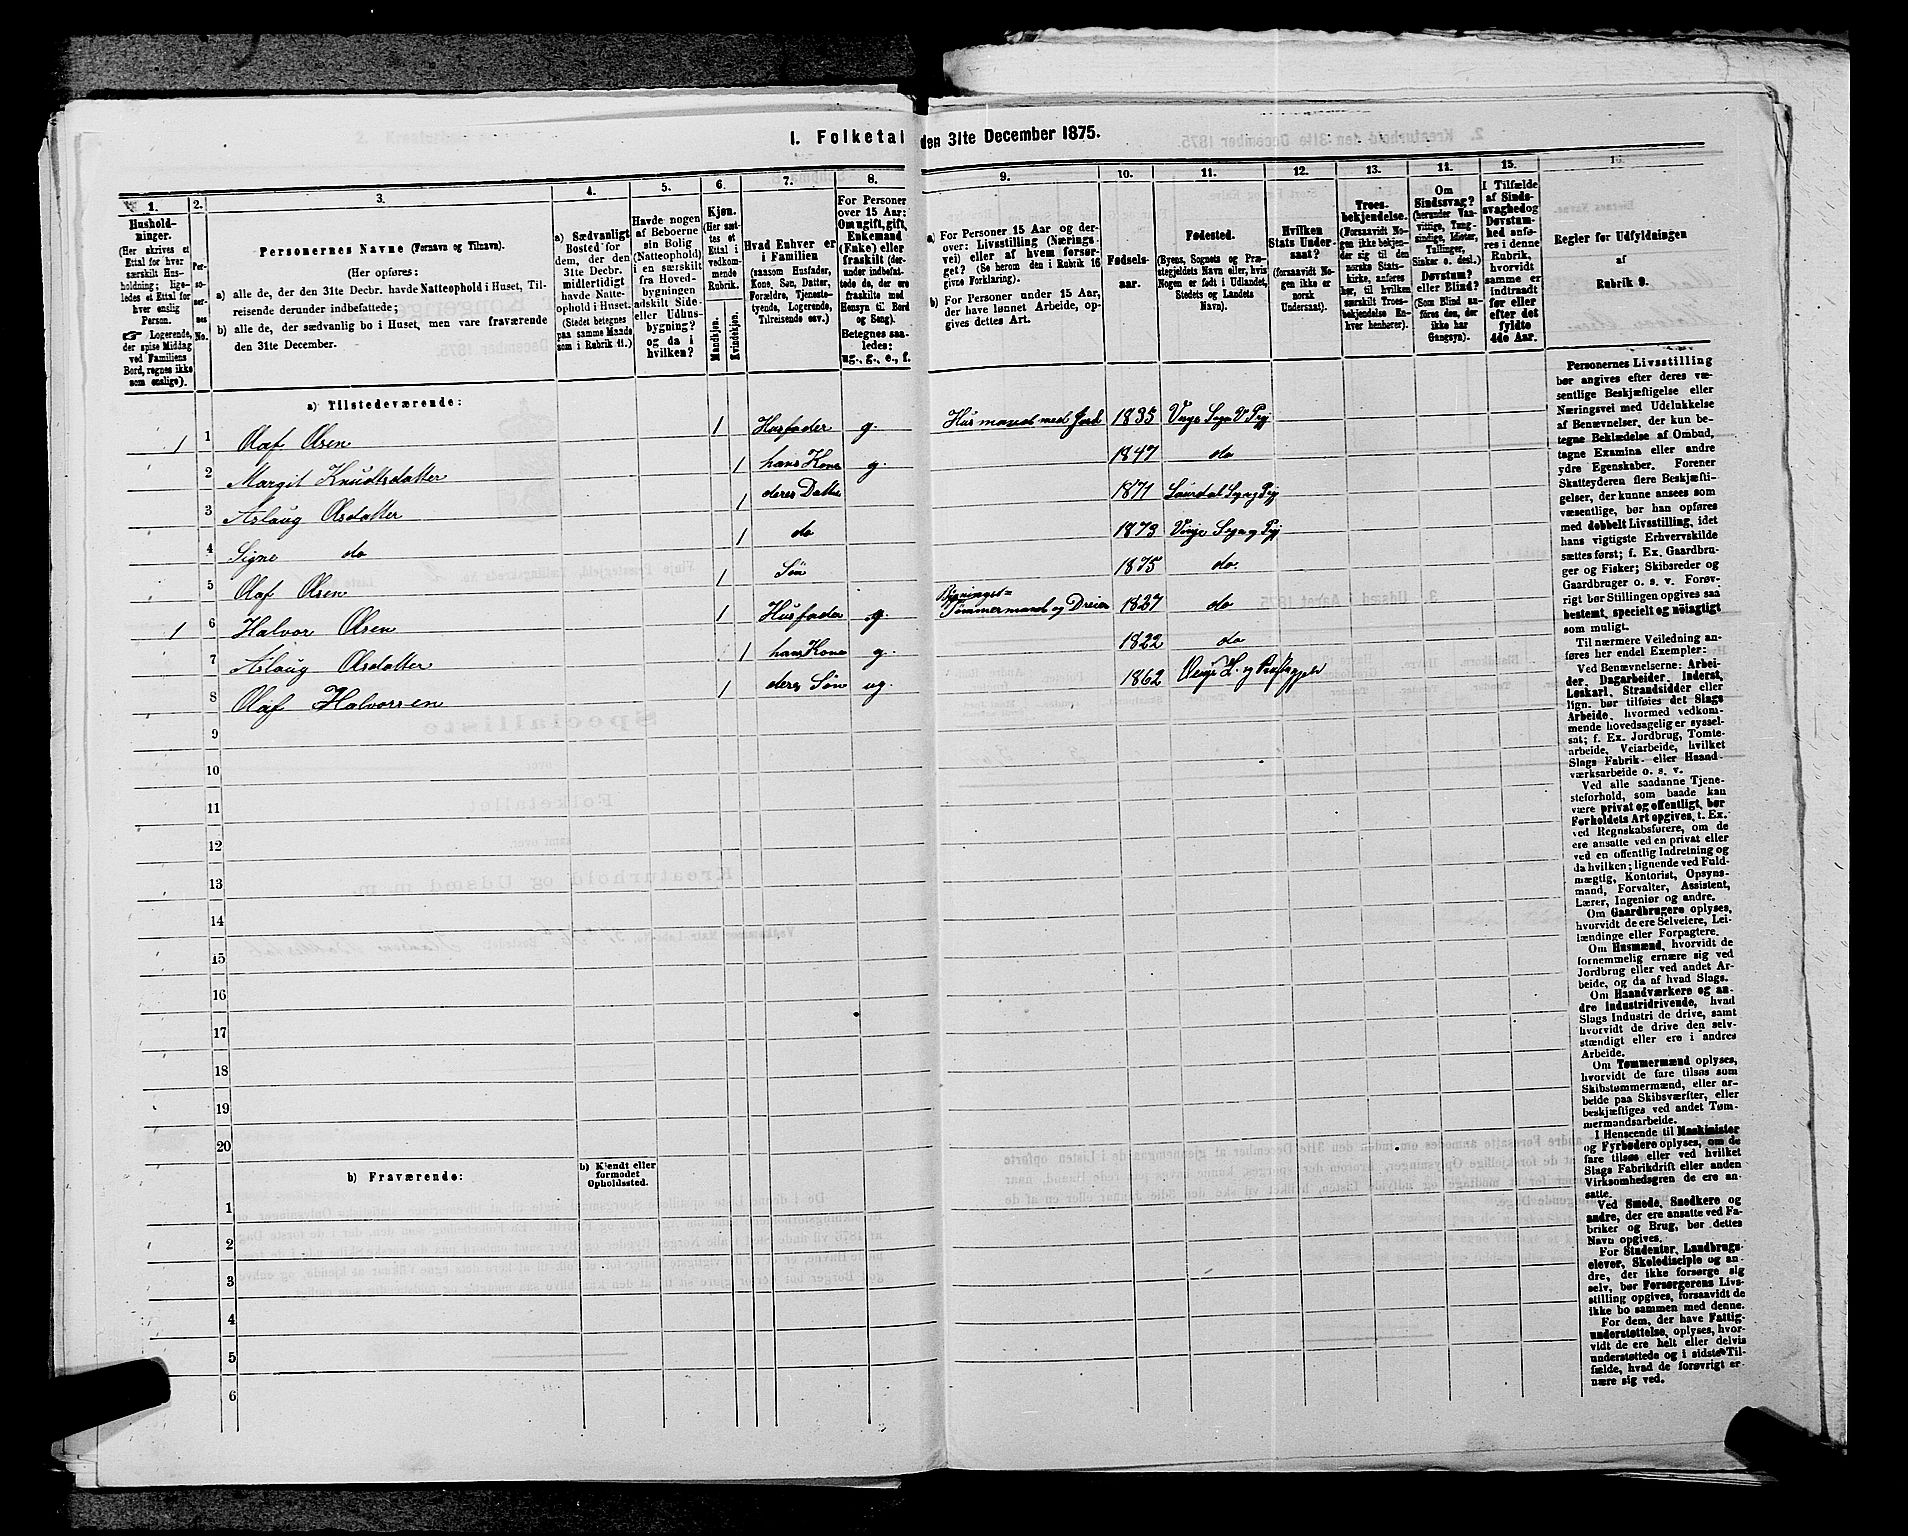 I. Folketal den 31te December 1875.
1. 2. 3. 4. 5. 6. 7. 8. 9. 10. 11. 12. 13. 14. 15. 16.
Husholdninger.
(Her skrives et Ettal for hver særskilt Husholdning; ligeledes et Ettal for hver enslig Person.
☞ Logerende, der spise Middag ved Familiens Bord, regnes ikke som enslige).
Personernes No.
Personernes Navne (Fornavn og Tilnavn).
(Her opføres:
a) alle de, der den 31te Decbr. havde Natteophold i Huset, Tilreisende derunder indbefattede;
b) alle de, der sædvanlig bo i Huset, men vare fraværende den 31te December.
a) Sædvanligt Bosted for dem, der den 31te Decbr. midlertidigt havde Natteophold i Huset. (Stedet betegnes paa samme Maade som i Rubrik 11.)
Havde nogen af Beboerne sin Bolig (Natteophold) i en særskilt fra Hovedbygningen adskilt Side- eller Udhusbygning? og da i hvilken?
Kjøn. (Her sættes et Ettal i vedkommende Rubrik.
Mandkjøn.
Kvindekjøn.
Hvad Enhver er i Familien
(saasom Husfader, Kone, Søn, Datter, Forældre, Tjenestetyende, Logerende, Tilreisende osv.)
For Personer over 15 Aar: Om ugift, gift, Enkemand (Enke) eller fraskilt (derunder indbefattede de, der ere fraskilte med Hensyn til Bord og Seng).
Betegnes saaledes: ug., g., e., f.
a) For Personer 15 Aar og derover: Livsstilling (Næringsvei) eller af hvem forsørget? (Se herom den i Rubrik 16 givne Forklaring).
b) For Personer under 15 Aar, der have lønnet Arbeide, opgives dettes Art.
Fødselsaar.
Fødested.
(Byens, Sognets og Præstegjeldets Navn eller, hvis Nogen er født i Udlandet, Stedets og Landets Navn).
Hvilken Stats Undersaat?
(forsaavidt Nogen ikke er norsk Undersaat).
Troesbekjendelse.
(Forsaavidt Nogen ikke bekjender sig til den norske Statskirke, anføres her, til hvilken særskilt Troesbekjendelse Enhver henhører).
Om Sindssvag? (herunder Vanvittige, Tungsindige, Idioter, Tullinger, Sinker o. desl.)
Døvstum? eller Blind?
(Som Blind anføres den, der ikke har Gangsyn).
I Tilfælde af Sindssvaghed og Døvstumhed anføres i denne Rubrik, hvorvidt samme er indtraadt før eller efter det fyldte 4de Aar.
Regler for Udfyldningen af Rubrik 9.
a) Tilstedeværende:
1 1 Olaf Olsen 1 Husfader g. Husmand med Jord 1835 Vinje Sogn V Pgj
2 Margit Knudtsdatter 1 hans Kone g. 1847 do
3 Aslaug Olsdatter 1 deres Datter 1871 Laurdal Sogn Pgj
4 Signe do 1 do 1873 Vinje Sogn og Pgj
5 Olaf Olsen 1 Søn 1875 do.
1 6 Halvor Olsen 1 Husfader g. Bygningst= Tømmermand og Dreier 1827 do
7 Aslaug Olsdatter 1 hans Kone g. 1822 do
8 Olaf Halvorsen 1 deres Søn ug. 1862
9
10
11
12
13
14
15
16
17
18
19
20
b) Fraværende:
b) Kjendt eller formodet Opholdssted.
1
2
3
4
5
6
Personernes Livsstilling bør angives efter deres væsentlige Beskjæftigelse eller Næringsvei med Udelukkelse af Benævnelser, der kun betegne Beklædelse af Ombud, tagne Examina eller andre ydre Egenskaber. Forener Skatteyderen flere Beskjæftigelser, der kunne ansees som væsentlige, bør han opføres med dobbelt Livsstilling, idet hans vigtigste Erhvervskilde sættes først; f. Ex. Gaardbruger og Fisker; Skibsreder og Gaardbruger o. s. v. Forøvrigt bør Stillingen opgives saa bestemt, specielt og nøiagtigt som muligt.
Til nærmere Veiledning anføres her endel Exempler:
Ved Benævnelserne: Arbeider, Dagarbeider, Inderst, Løskarl, Strandsidder eller lign. bør tilføies det Slags Arbeide, hvormed vedkommende hovedsagelig er sysselsat; f. Ex. Jordbrug, Tomtearbeide, Veiarbeide, hvilket Slags Fabrik- eller Haandværksarbeide o. s. v.
Ved alle saadanne Tjenesteforhold, som baade kan være privat og offentligt, bør Forholdets Art opgives, t. Ex. ved Regnskabsførere, om de ere ansatte ved en privat eller ved en offentlig Indretning og da hvilken; lignende ved Fuldmægtig, Kontorist, Opsynsmand, Forvalter, Assistent, Lærer, Ingeniør og andre.
Om Gaardbrugere oplyses, hvorvidt de ere Selveiere, Leilændinge eller Forpagtere.
Om Husmænd, hvorvidt de fornemmelig ernære sig ved Jordbrug eller ved andet Arbeide, og da af hvad Slags.
Om Haandværkere og andre industridrivende, hvad Slags Industri de drive, samt hvorvidt de drive den selvstændigt eller ere i andres Arbeide.
Om Tømmermænd oplyses, hvorvidt de fare tilsøs som Skibstømmermænd, eller arbeide paa Skibsværfter, eller beskjæftiges ved andet Tømmermandsarbeide.
I Henseende til Maskinister og Fyrbødere oplyses, om de fare tilsøs eller ved hvilket Slags Fabrikdrift eller anden Virksomhedsgren de ere ansatte.
Ved Smede, Snedkere og andre, der ere ansatte ved Fabriker og Brug, bør dettes Navn opgives.
For Studenter, Landbrugselever, Skoledisciple og andre, der ikke forsørge sig selv, bør Forsørgerens Livsstilling opgives, forsaavidt de ikke bo sammen med denne.
For dem, der have Fattigunderstøttelse, oplyses, hvorvidt de ere helt eller delvis understøttede og i sidste Tilfælde, hvad de forøvrigt ernære sig ved.